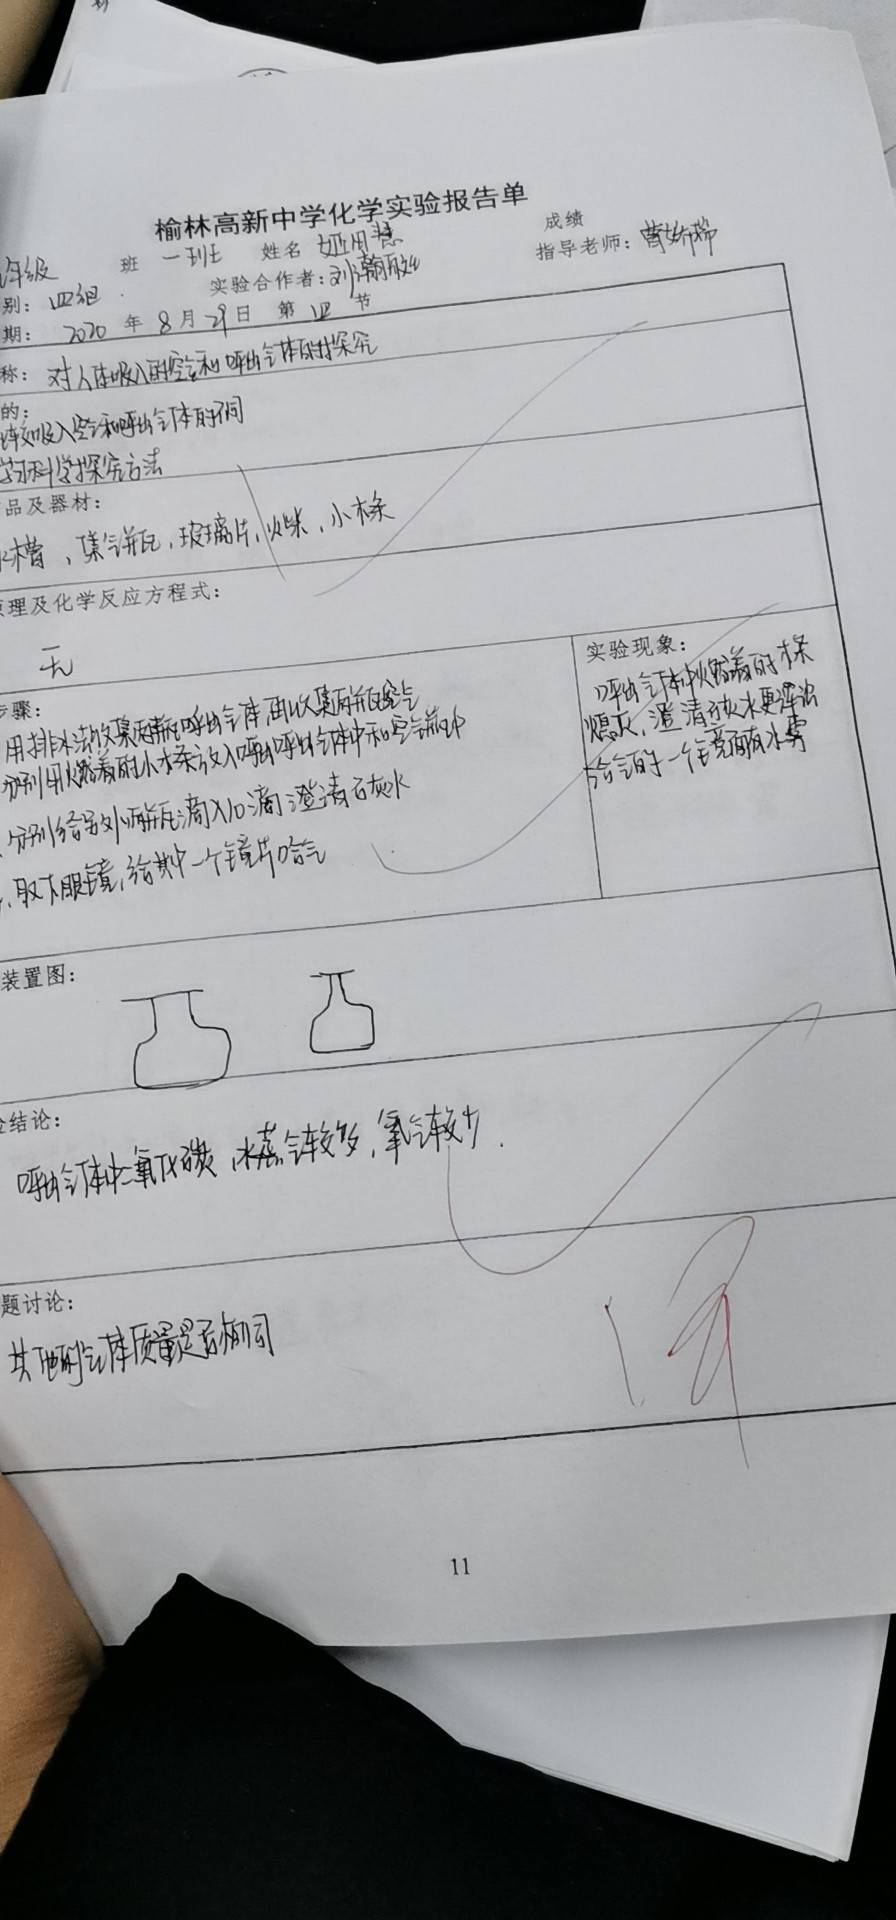 榆林高新中学化学实验报告单
成绩
年级 班 一班 姓名
指导老师：
别：四组 实验合作者：刘瀚
期：2020年8月29日 第四节
称：对人体吸入的空气和呼出气体的探究
的：
比较吸入空气和呼出气体的不同
学习科学探究方法
品及器材：
水槽，集气瓶，玻璃片，火柴，小木条
原理及化学反应方程式：
无
步骤：
用排水法收集两瓶呼出气体 再收集两瓶空气
分别用燃着的小木条放入呼出呼出气体中和空气瓶中
分别给另外两瓶滴入10滴澄清石灰水
取下眼镜，给其中一个镜片哈气
实验现象：
呼出气体中燃着的木条
熄灭，澄清石灰水更浑浊
哈气的一个镜面有水雾
装置图：
验结论：
呼出气体中二氧化碳，水蒸气较多，氧气较少.
题讨论：
其他的气体质量是否相同
11